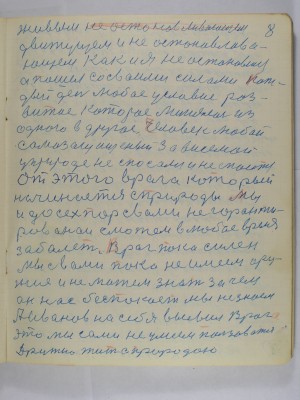 8
живым не останавливающем
двигущем и не останавлива
ющем как и я не остановил
а пошел со своими силами Каж-
дый ден любое условие роз-
витие которое меняемая из
одного в другое Человек любой
самозащищеный зависемай
у природе не спасали и не спасет
От этого врага который
начинается с природы мы
и до сех пор с вами не горанти-
рованаи сможем в любое время
заболеть. Враг пока силен
мы с вами пока не имеем ору-
жия и не можем знат за чем
он нас беспокоет мы не знаем
А Иванов на себя выевил врага
это мы сами не умеем ползоватся
Дружно жить с природою